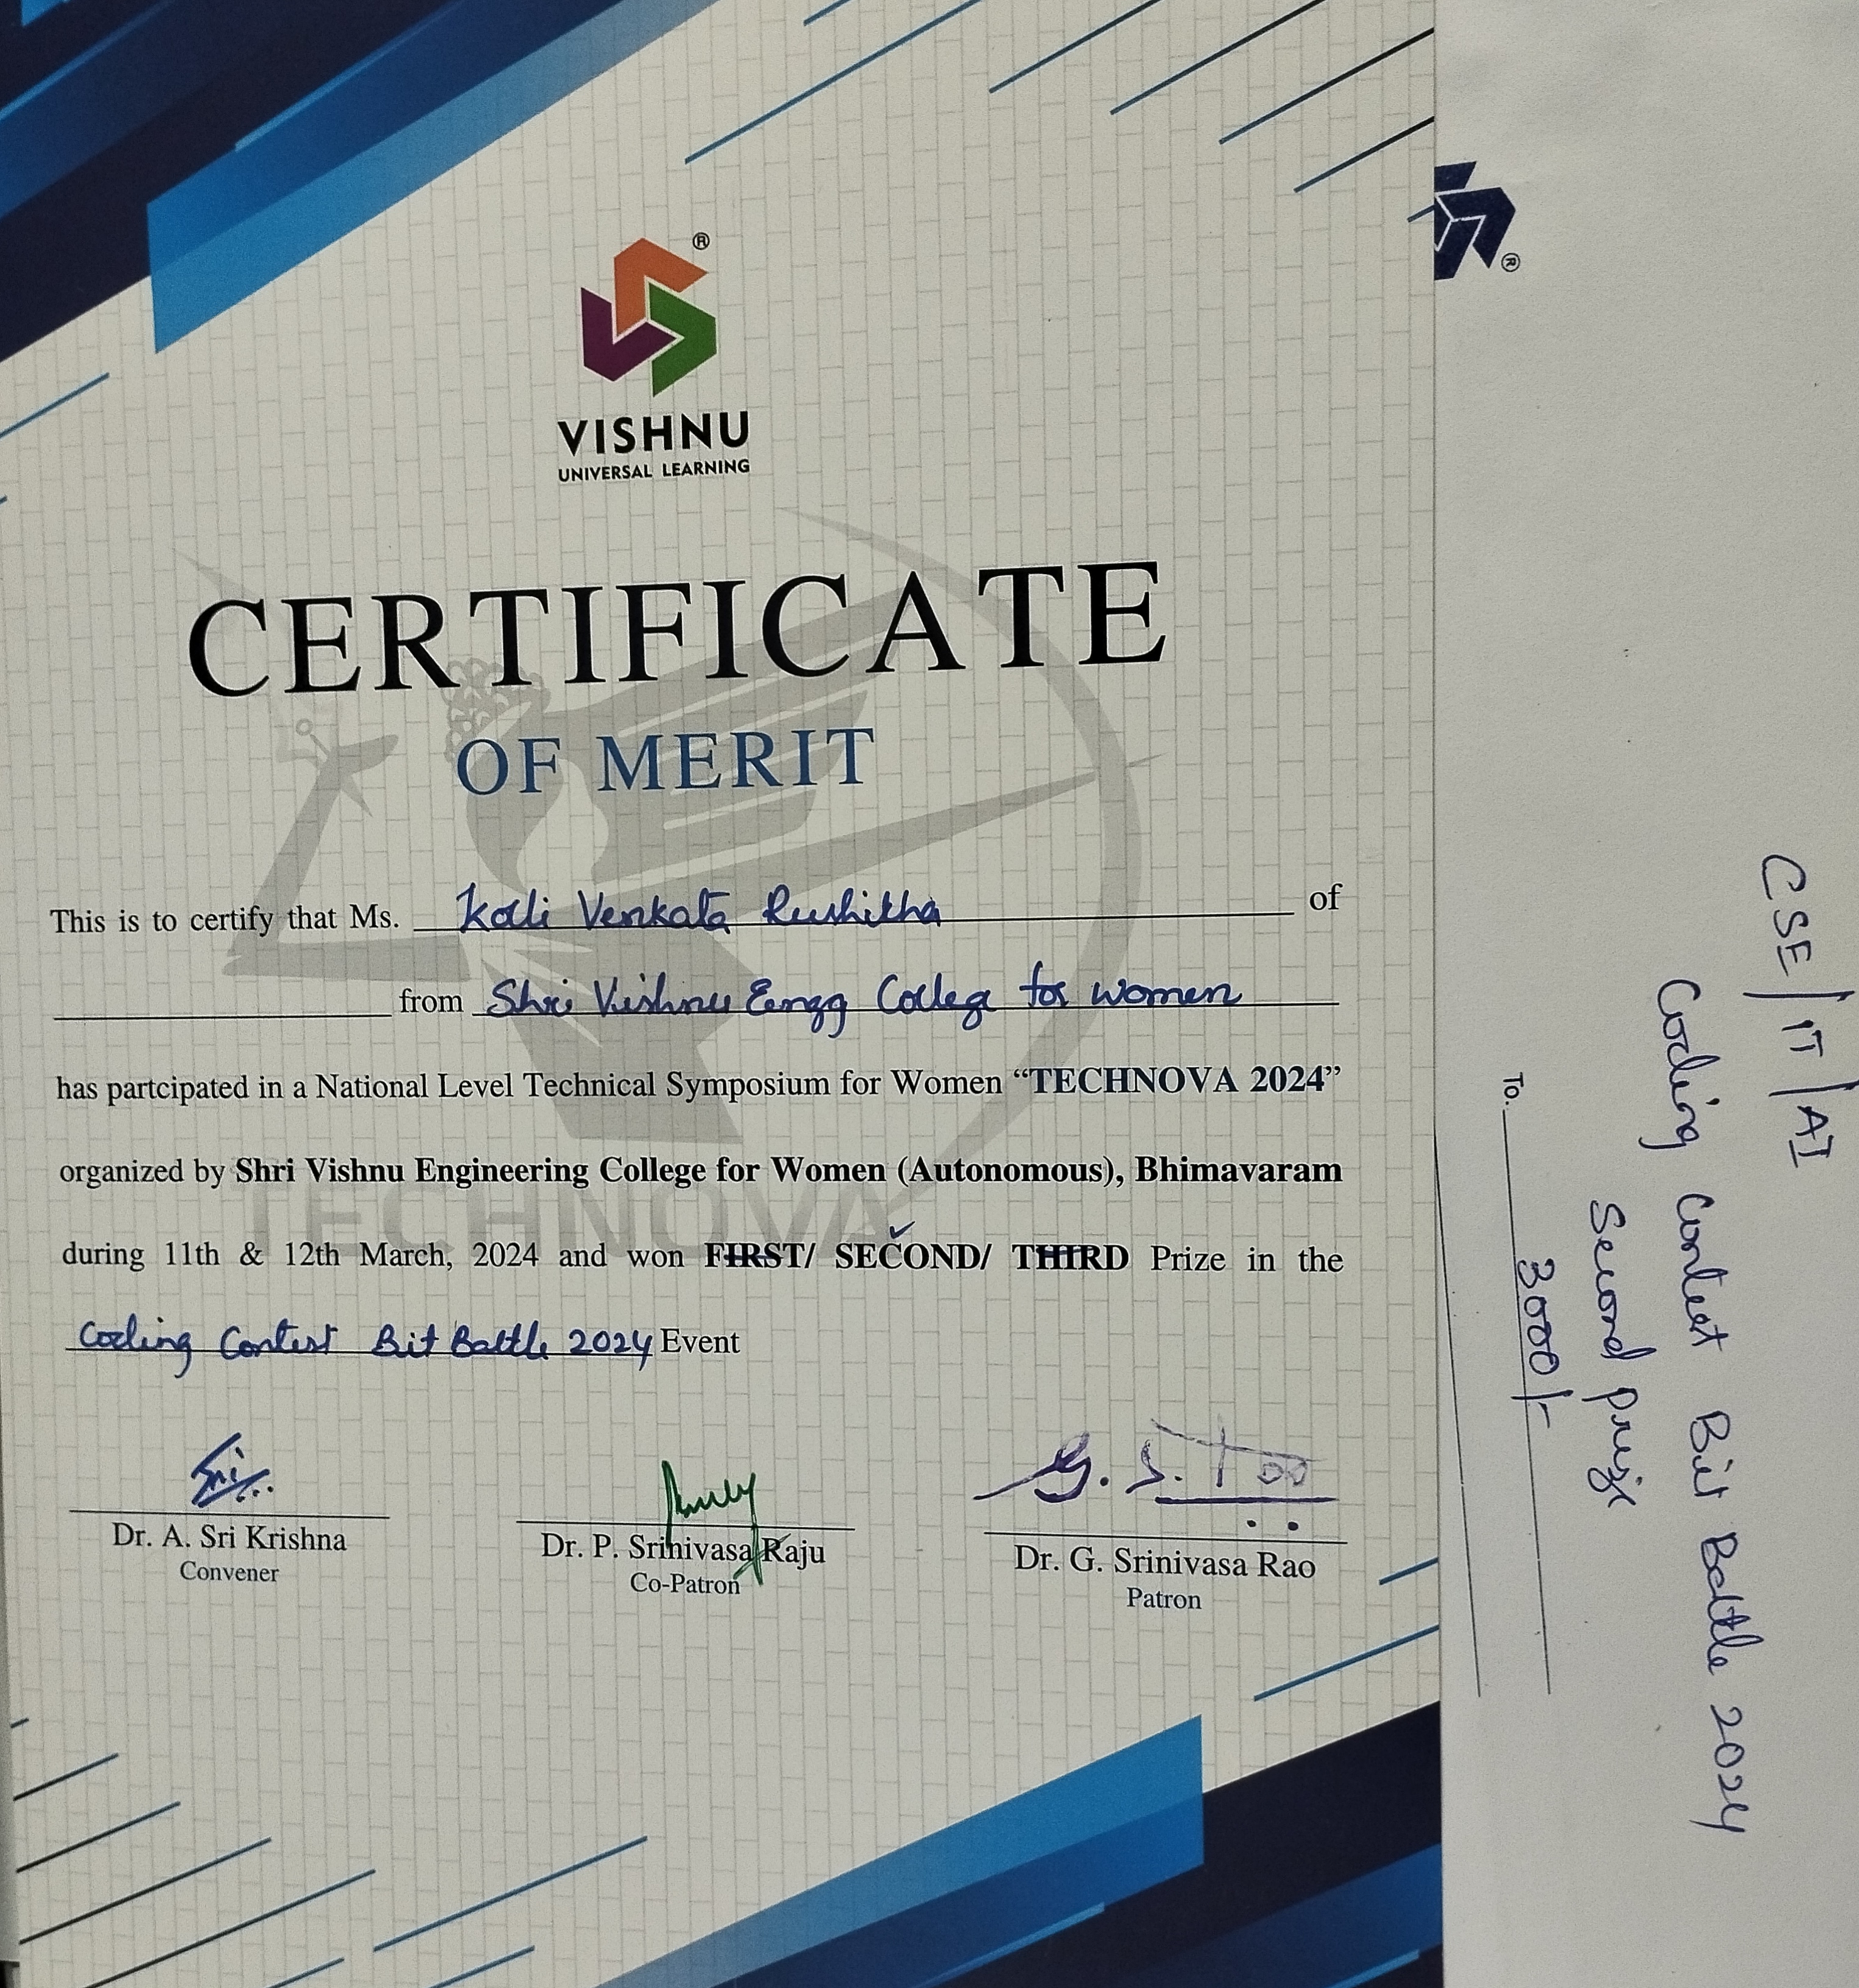 ®
VISHNU
UNIVERSAL LEARNING
CERTIFICATE
OF MERIT
This is to certify that Ms. Kodi Venkata Rushitha of
from Shri Vishnu Eengg College for women
has partcipated in a National Level Technical Symposium for Women “TECHNOVA 2024”
organized by Shri Vishnu Engineering College for Women (Autonomous), Bhimavaram
TECHNOVA
during 11th & 12th March, 2024 and won FIRST/ SECOND/ THIRD Prize in the
Coding Contest Bit Battle 2024 Event
Sri
G. S. Rao
Dr. A. Sri Krishna
Convener
Dr. P. Srinivasa Raju
Co-Patron
Dr. G. Srinivasa Rao
Patron
®
CSE / IT / AI
Coding Contest Bit Battle 2024
Second prize
To. 3000/-